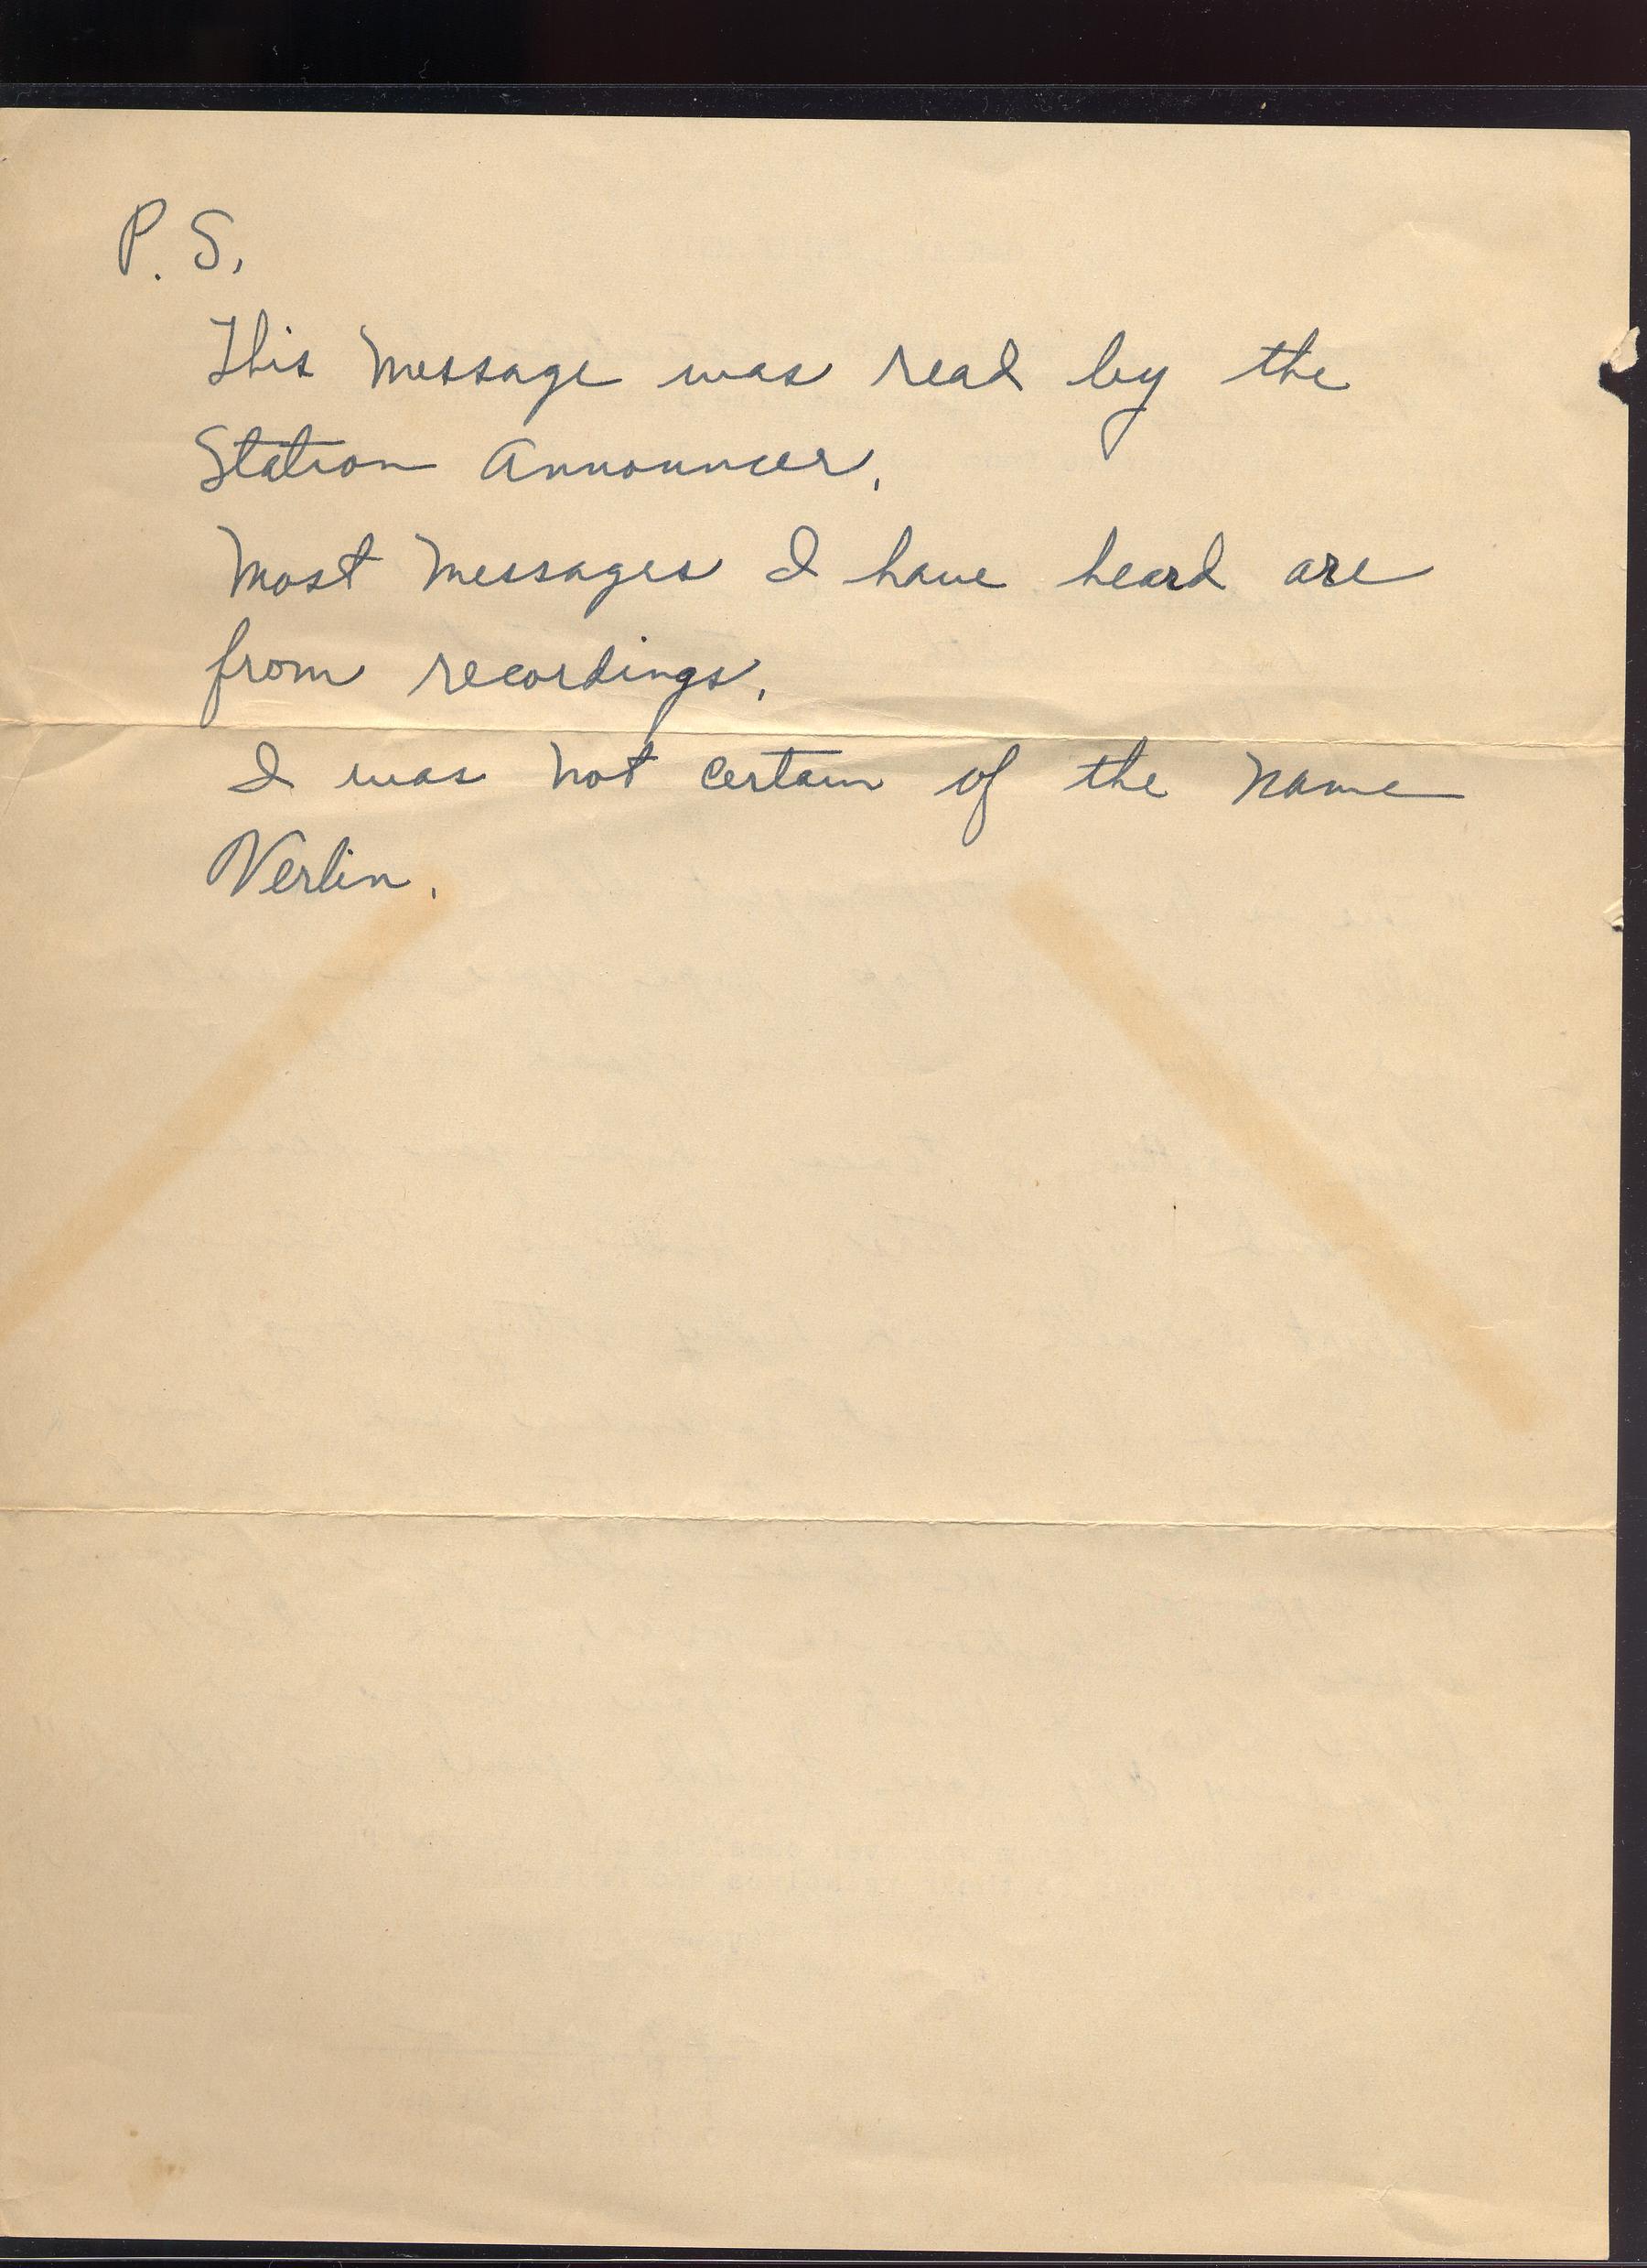 P. S.
This message was read by the
Station Announcer.
Most messages I have heard are
from recordings.
I was not certain of the name
Verlin.